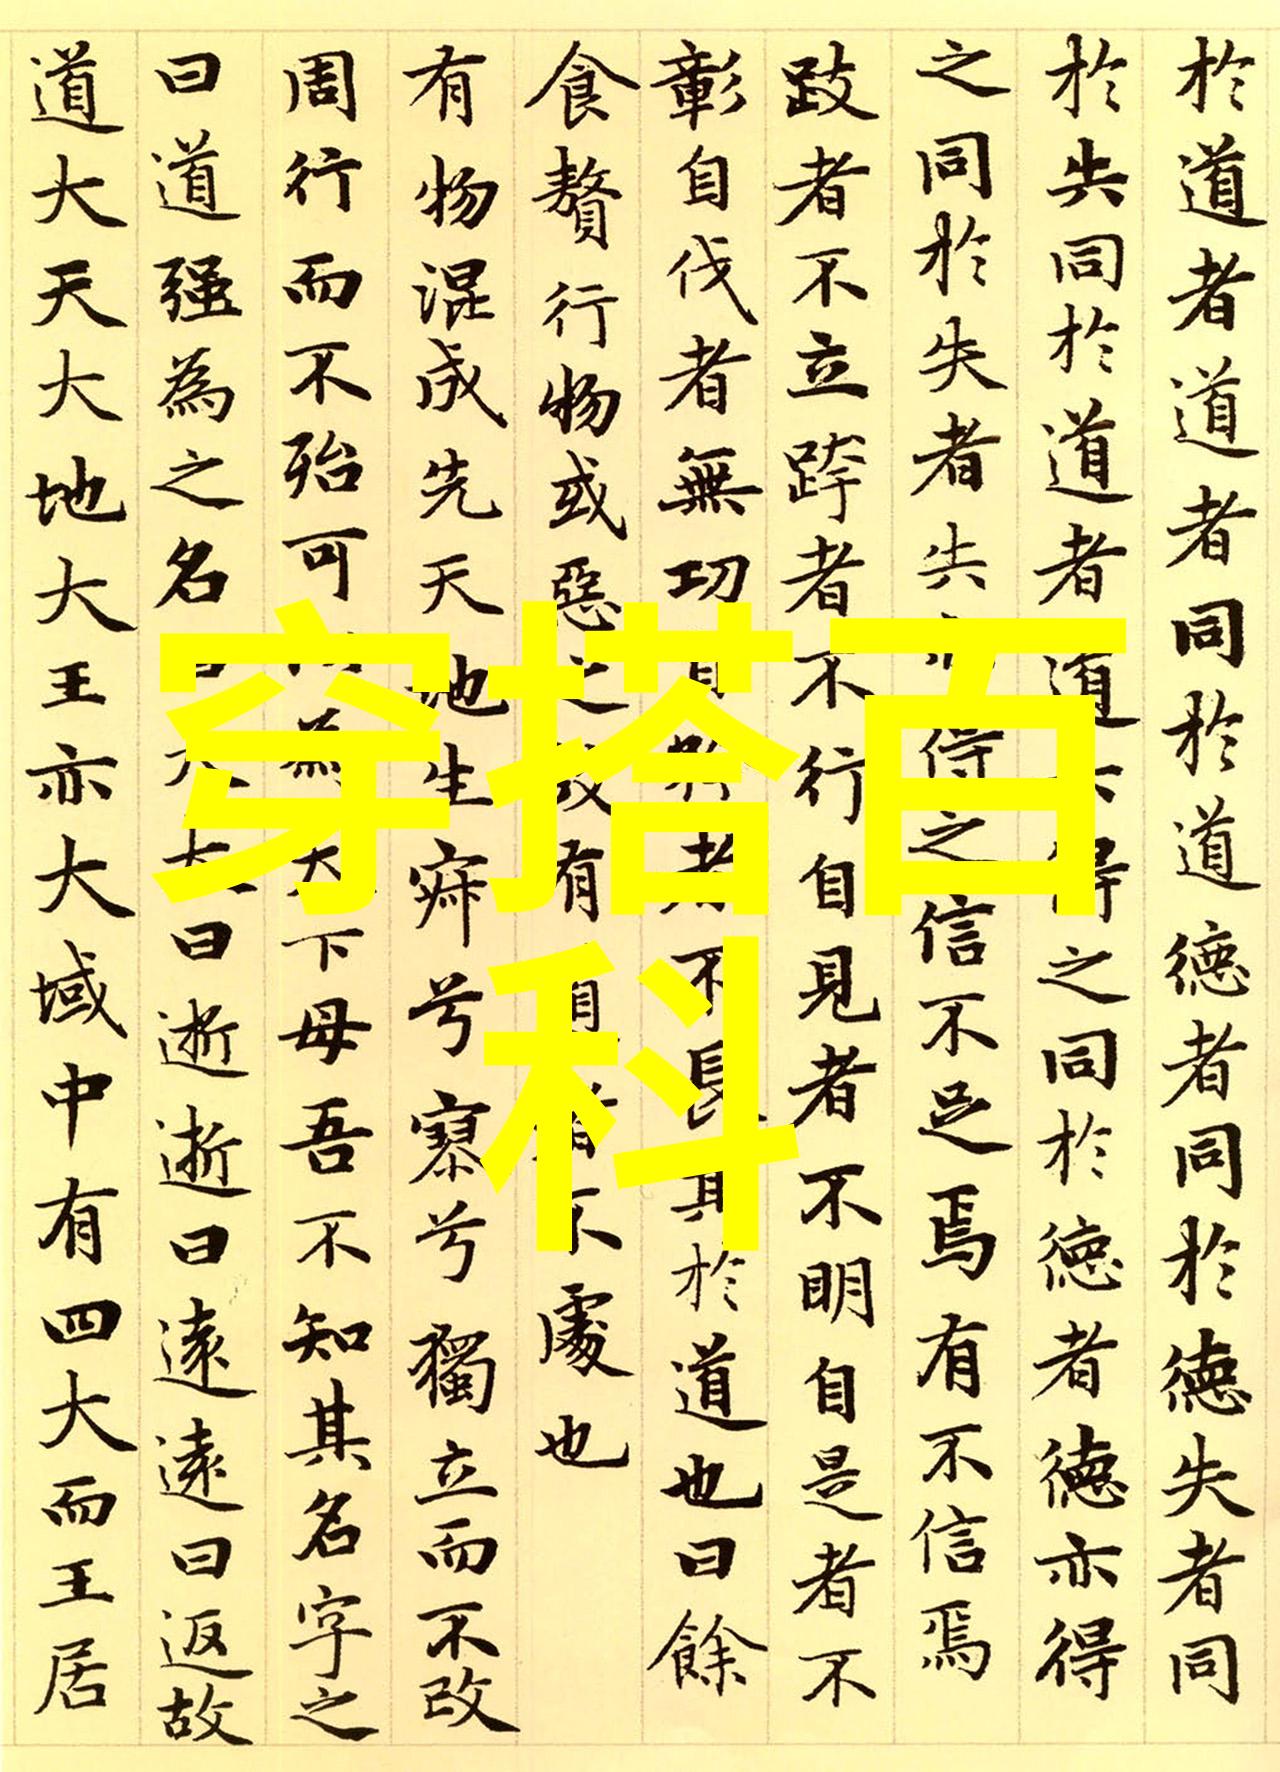 於道者道者同於道德者同於德失者同
於失同於道者道亦得之同於德者德亦得
之同於失者失亦得之信不足焉有不信焉
跂者不立跨者不行自見者不明自是者不
彰自伐者無功自矜者不長其於道也曰餘
食贅行物或惡之故有道者不處也
有物混成先天地生寂兮寥兮獨立而不改
周行而不殆可以為天下母吾不知其名字之
曰道强為之名曰大大曰逝逝曰遠遠曰返故
道大天大地大王亦大域中有四大而王居
穿搭百
科